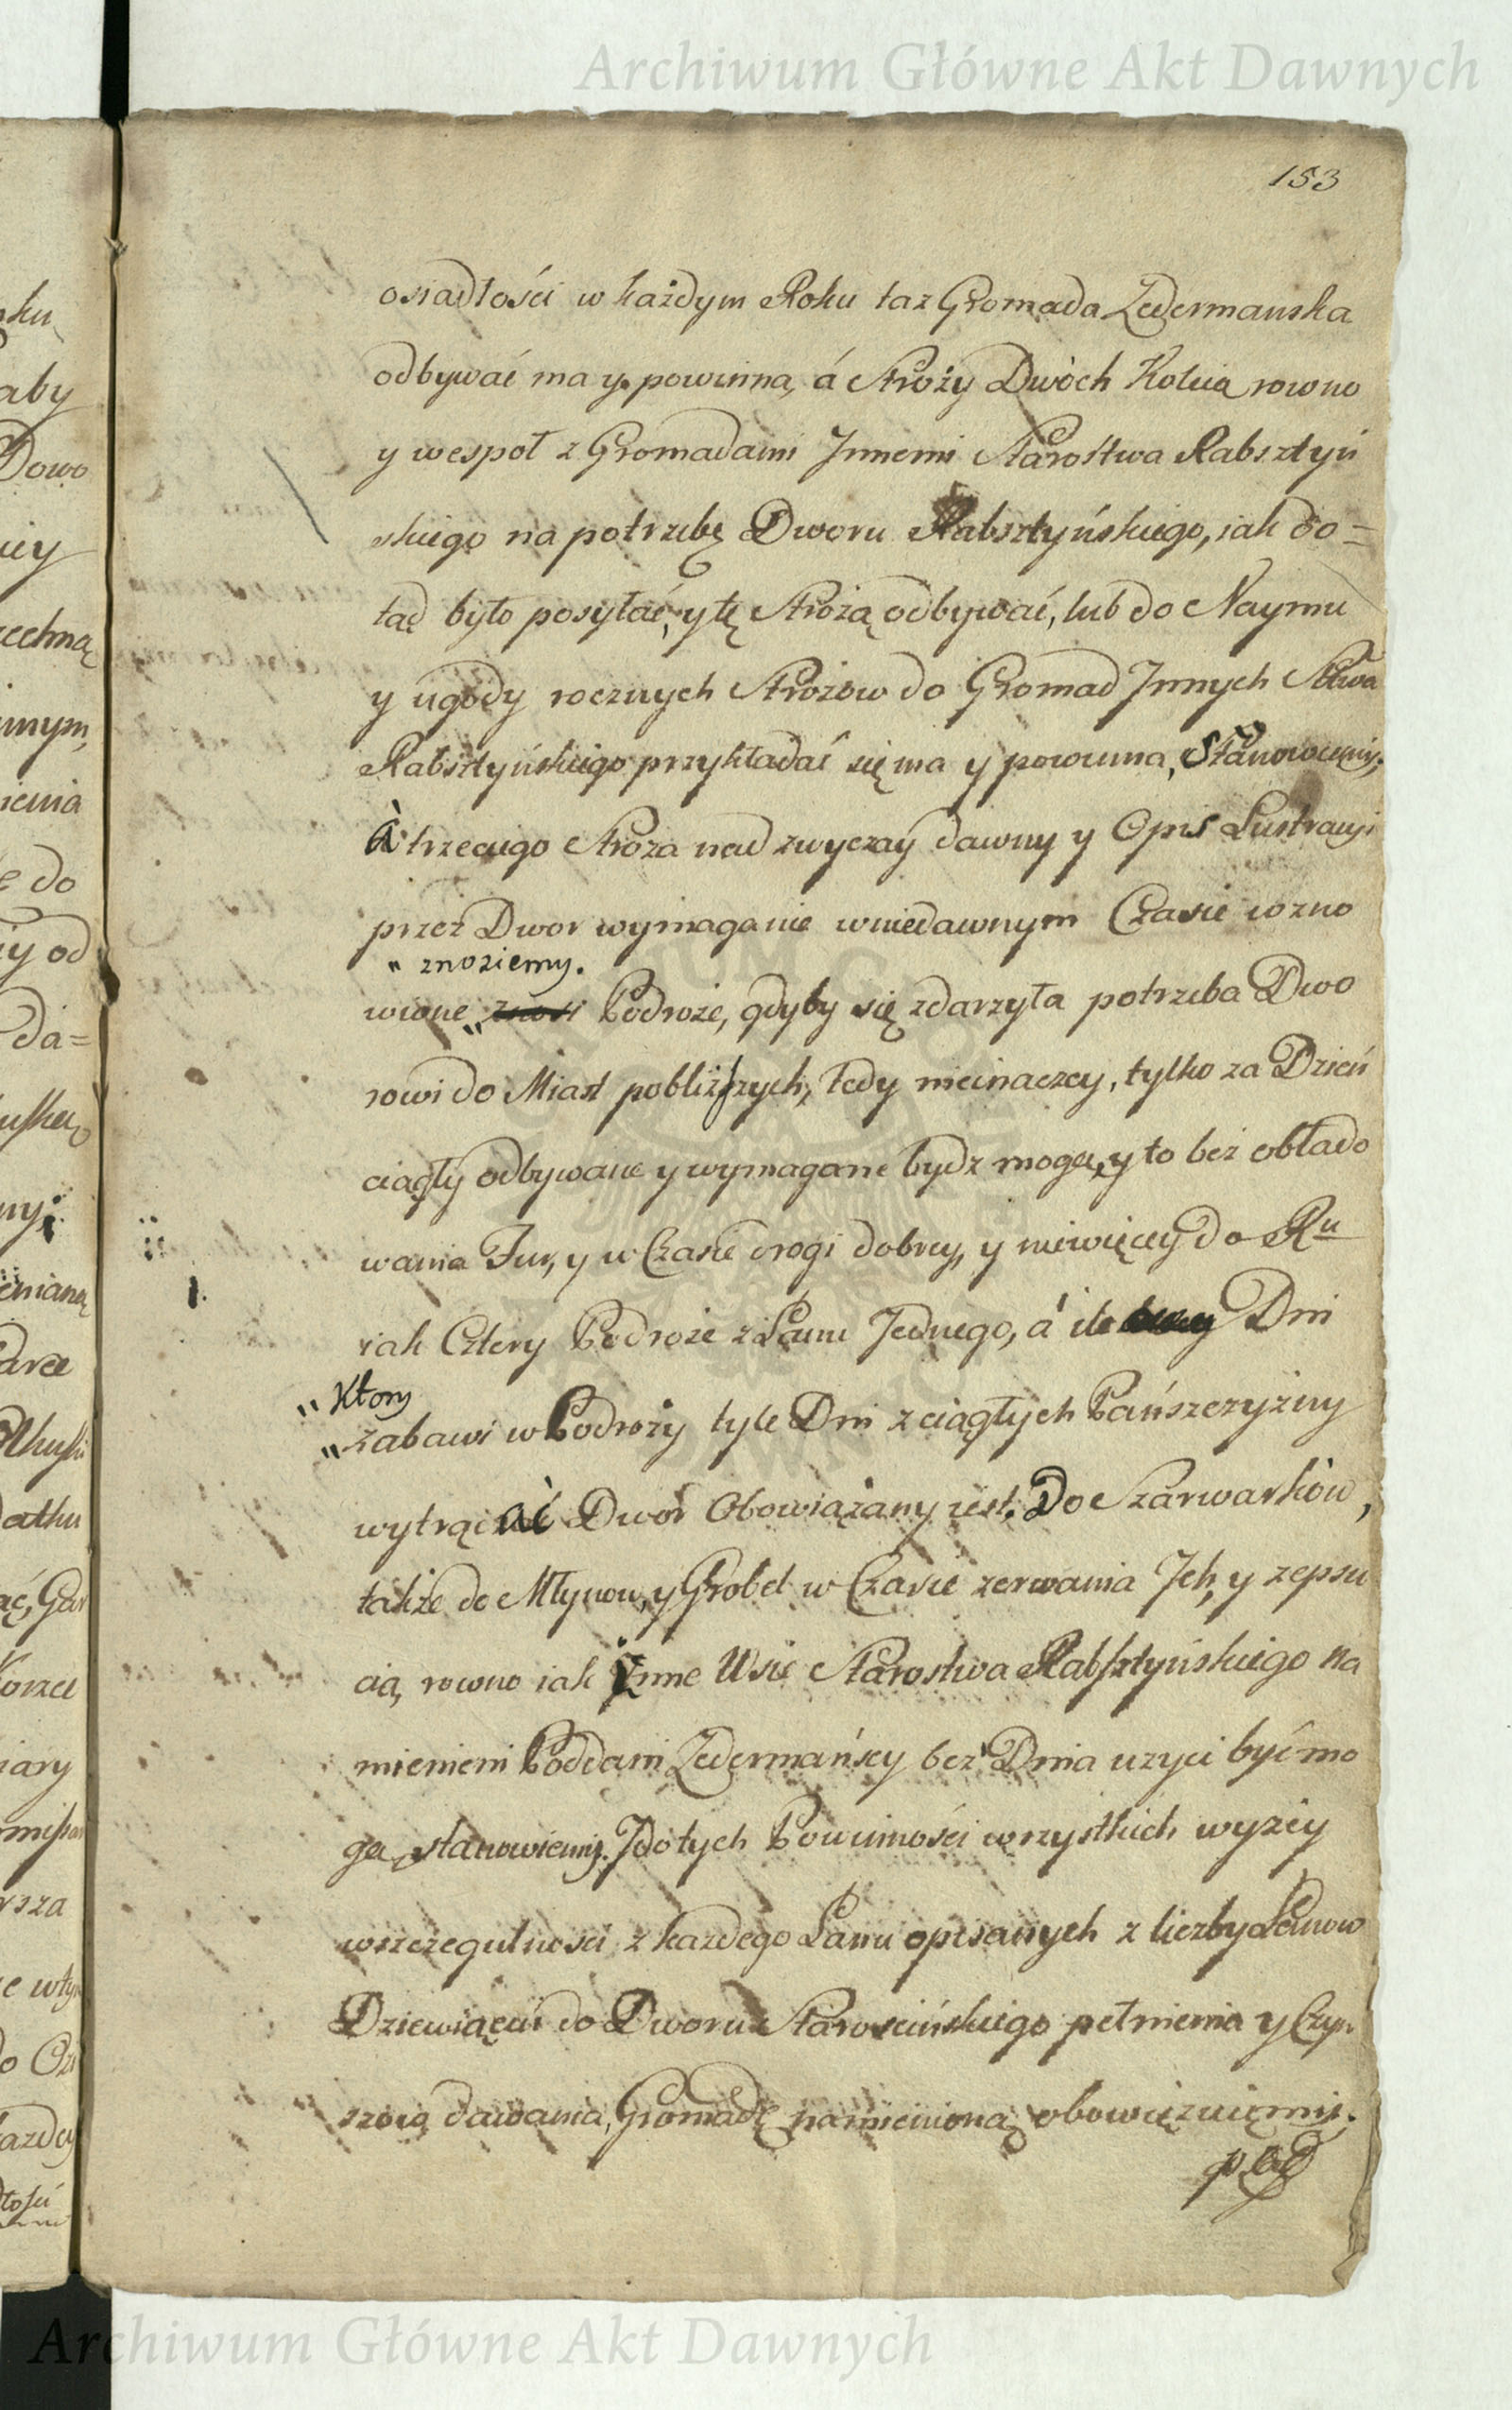 Archiwum Główne Akt Dawnych
153
osiadłości w każdym Roku taz Gromada Zedermanska
odbywać ma y powinna, á Stroży Dwòch Koleią rowno
y wespoł z Gromadami Jnnemi Starostwa Rabsztyń
skiego na potrzebę Dworu Rabsztyńskiego, iak do=
tąd było posyłać, y tę Strożą odbywać, lub do Naymu
y ugody rocznych Strożow do Gromad Jnnych Sttwa
Rabsztyńskiego przykładać się ma y powinna, Stanowiemy,
à trzeciego Stroża nad zwyczay dawny y Opis Lustracyi
przez Dwor wymaganie w niedawnym Czasie wzno
" znoziemy.
wione " Podroże, gdyby się zdarzyła potrzeba Dwo
rowi do Miast pobliższych, tedy nieinaczey, tylko za Dzień
ciągły odbywane y wymagane bydz mogą, y to bez obłado
wania Fur, y w Czasie drogi dobrey, y niewięcey do Ru
iak Cztery Podroże z Łanu Jednego, á ile Dni
" Ktory
" zabawi w Podroży tyle Dni z ciągłych Pańszczyzny
wytrącać Dwor Obowiązany iest. Do Szarwarkòw,
także do Młynow, y Grobel w Czasie zerwania Jch, y zepsu
cia, rowno iak Jnne Wsie Starostwa Rabsztyńskiego na
mienieni Poddani Zedermańscy bez Dnia uzyci być mo
gą, stanowiemy. J do tych Powinności wszystkich wyżey
wszczegulności z każdego Łanu opisanych z liczby Łanow
Dziewiąciu do Dworu Starościńskiego pełnienia y Czyn
szow dawania, Gromadę namienioną obowięzuięmy.
pod
Archiwum Główne Akt Dawnych